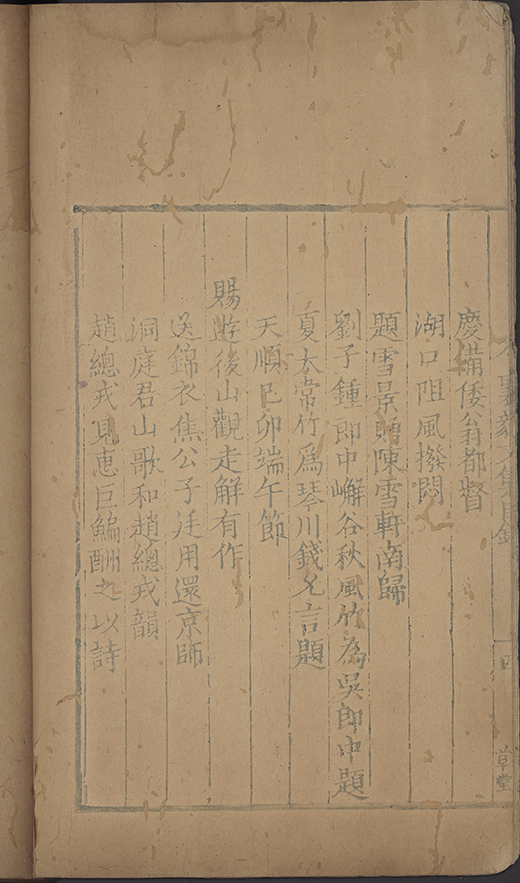 慶備倭翁都督
湖口阻風撥悶
題雪景贈陳雪軒南歸
劉子鍾郎中嶰谷秋風竹為吳郎中題
夏太常竹爲琴川錢允言題
天順己卯端午節
賜遊後山觀走解有作
送錦衣焦公子廷用還京師
洞庭君山歌和趙總戎韻
趙總戎見惠巨鯿酬之以詩
襄毅文集目錄
四
草堂